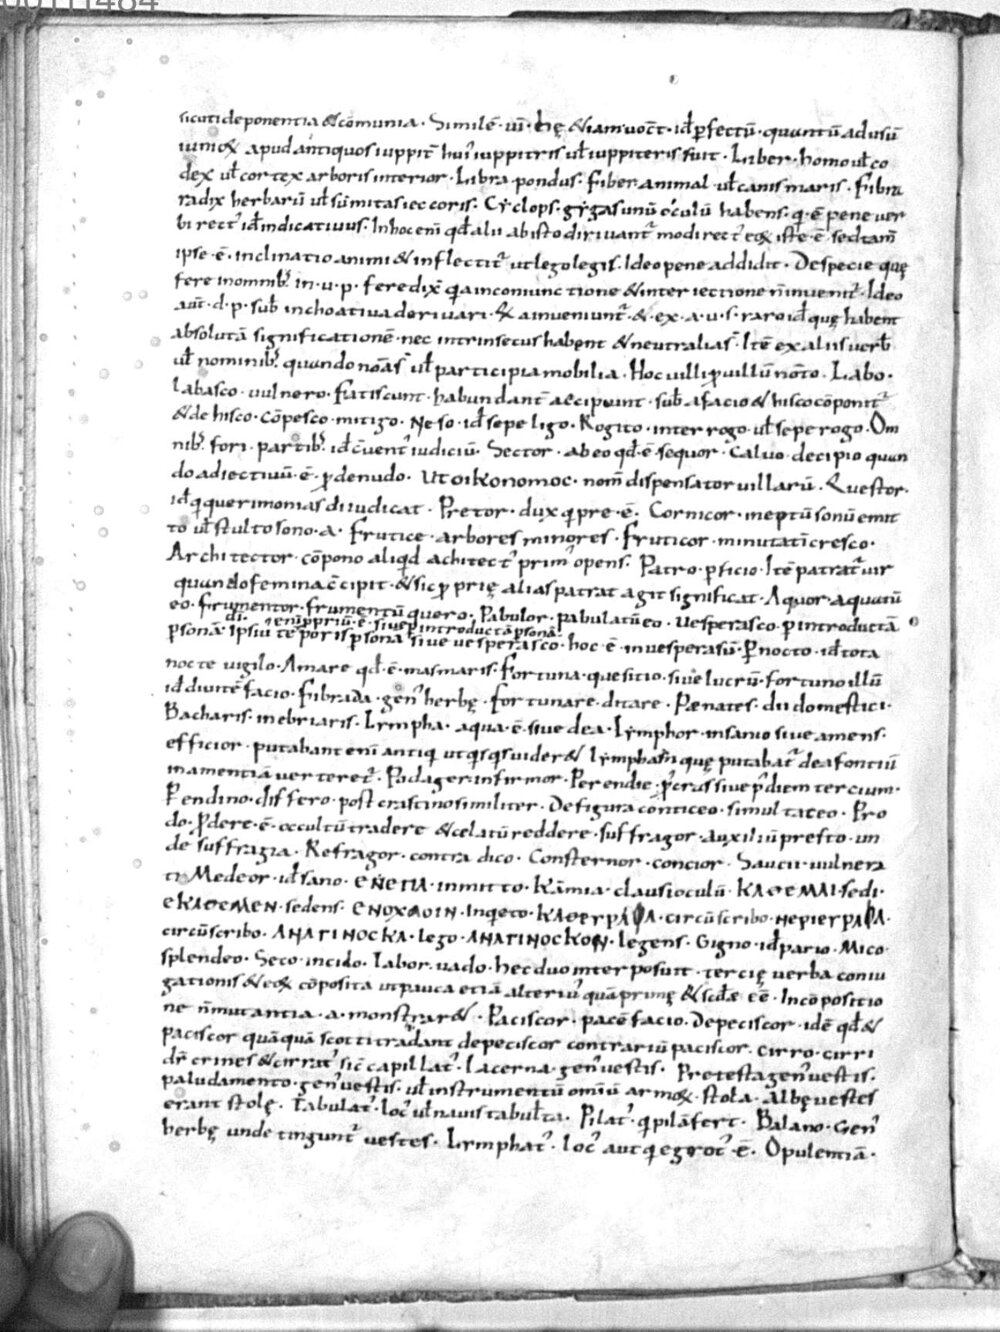 00111484
sicuti deponentia & cōmunia · Similē · ui · hę & iam uoc̄t · id ꝑfectū · quantū ad usū
iuniox apud antiquos iuppit̄ hui' iuppitris uƚ iuppiteris fuit · Liber · homo uƚ co
dex uƚ cortex arboris interior · Libra pondus · Fiber animal uƚ canis maris · Fibra
radix herbarū uƚ sūmitas ieccoris · Cyclops · gygas unū oculū habens · q · ē pene uer
bi rect' id indicatiuus · In hoc eni qđ alii ab isto diriuant' modi rect' eox iste · ē · sed tam̄
ipse · ē · inclinatio animi & inflectit' ut lego legis · Ideo pene addidit · De specie quę
fere in omnib; in · u · p · fere dix̄ q̄a in coniunctione & interiectione n̄ inuenit' · Ideo
aut̄ · d · p · sub inchoatiua deriuari · & a inueniunt' · & · ex · a · u · s · raro id quę habent
absolutā significationē · nec intrinsecus habent & neutralias · Itē ex aliis uerb
uƚ nominib; quando nōas uƚ participia mobilia · Hoc uilli ꝓ uillū nōto · Labo ·
labasco · uulnero · Fatiscunt · habundant' accipiunt · sub a facio & hisco cōponit'
& dehisco · cōpesco · mitigo · Neso · id sepe ligo · Rogito · interrogo uƚ sepe rogo · Om
nib; fori · partib; id c̄uent' iudiciū · Sector · ab eo qđ · ē sequor · Caluo · decipio quan
do adiectiuū · ē · ꝓ denudo · Ut oikonomoc · nom̄ dispensator uillarū · Questor ·
id q querimonias diiudicat · Pretor · dux q pre · ē · Cornicor · ineptū sonū emit
to uƚ stulto sono · a · Frutice · arbores minores · Fruticor · minutatī cresco ·
Architector · cōpono aliqđ achitect' prim' opens · Patro · ꝑficio · Itē patrat' uir
quando femina c̄cipit · & sic ꝓprię alias patrat agit significat · Aquor · aquatū
eo · frumentor · frumentū quero · Pabulor · pabulatū eo · Uesperasco · ꝑ introductā
di · eni ꝓpriū · ē · siue ꝑ introductā ꝑsonā
ꝑsonā · ipsiu' tēporis ꝑsona siue uesperasco · hoc · ē · in uesperasū · Pnocto · id tota
nocte uigilo · Amare qđ · ē · mas maris · Fortuna · quesitio · siue lucrū · fortuno illū
id diuitē facio · Fibrada · gen' herbę · fortunare · ditare · Pænates · dii domestici ·
Bacharis · inebriaris · Lympha · aqua · ē · siue dea · Lymphor · insanio siue amens ·
efficior · putabant eni antiq ut qsqs uider& lymphā quę putabat' dea fontiū
in amentiā uerteret' · Podager · infirmor · Perendie · p'cras siue p'diem tercium ·
Pendino · differo · post crastino similiter · De figura conticeo · simul taceo · Pro
do · ꝓdere · ē · occultū tradere & celatū reddere · suffragor · auxiliū presto · un
de suffragia · Refragor · contra dico · Consternor · concior · Saucii · uulnera
ti · Medeor · id sano · ΕΝΕΠΑ · inmitto · Kāmia · clausi oculū · ΚΑΘΕΜΑΙ · sedi ·
ΕΚΑΘΕΜΕΝ · sedens · inqeto · circūscribo ·
circūscribo · ΑΝΑΓΙΝΟСΚΑ · lego · ΑΝΑΓΙΝΟСΚΟΝ · legens · Gigno · id pario · Mico ·
splendeo · Seco · incido · Labor · uado · hec duo interposuit · tercię uerba coniu
gationis & eox cōposita ut pauca etiā alteriu' quā primę & scdæ · eē · In cōpositio
ne n̄ mutantia · a · monstrar& · Paciscor · pacē facio · Depeciscor · idē qđ &
paciscor quāquā scotti tradant depeciscor contrariū paciscor · Cirro · cirri
dr̄ crines & cirrat' sic̄ capillat' · Lacerna · gen' uestis · Pretesta gen' uestis ·
paludamento · gen' uestis · uƚ instrumentū omiū armox · stola · Albę uestes
erant stolę · Tabulat' · loc' uƚ nauis tabulata · Pilat' · q pilā fert · Balano · Gen'
herbę unde tingunt' uestes · Lymphat' · loc' aut q egrot' · ē · Opulentiā ·